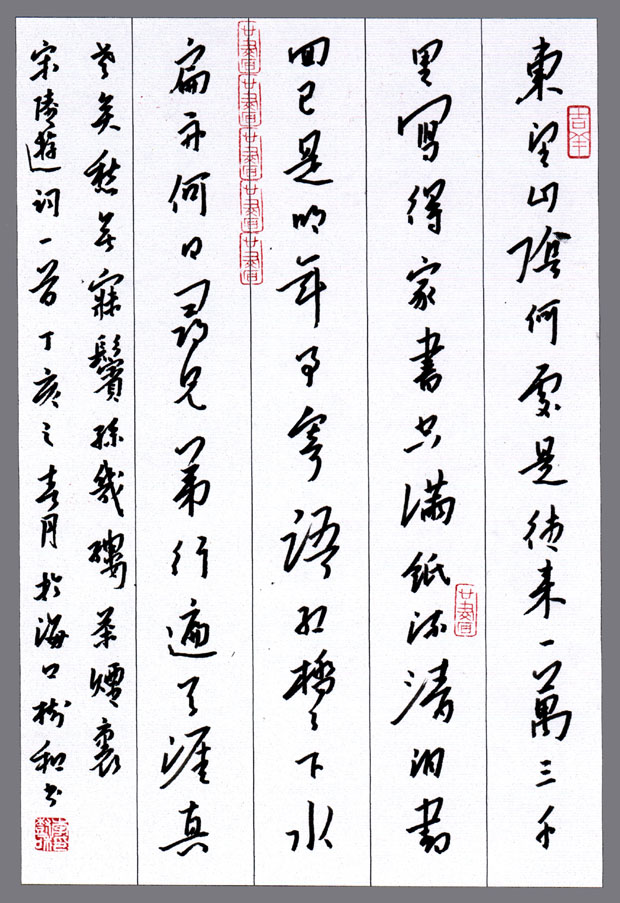 東望山陰何處是往来一萬三千
吉羊
里寫得家書空滿紙流清泪書
回已是明年事寄語紅橋々下水
扁舟何日尋兄弟行遍天涯真
老矣愁無寐鬢絲幾縷茶煙裏
宋陸游詞一首丁亥之春月於海口樹和书